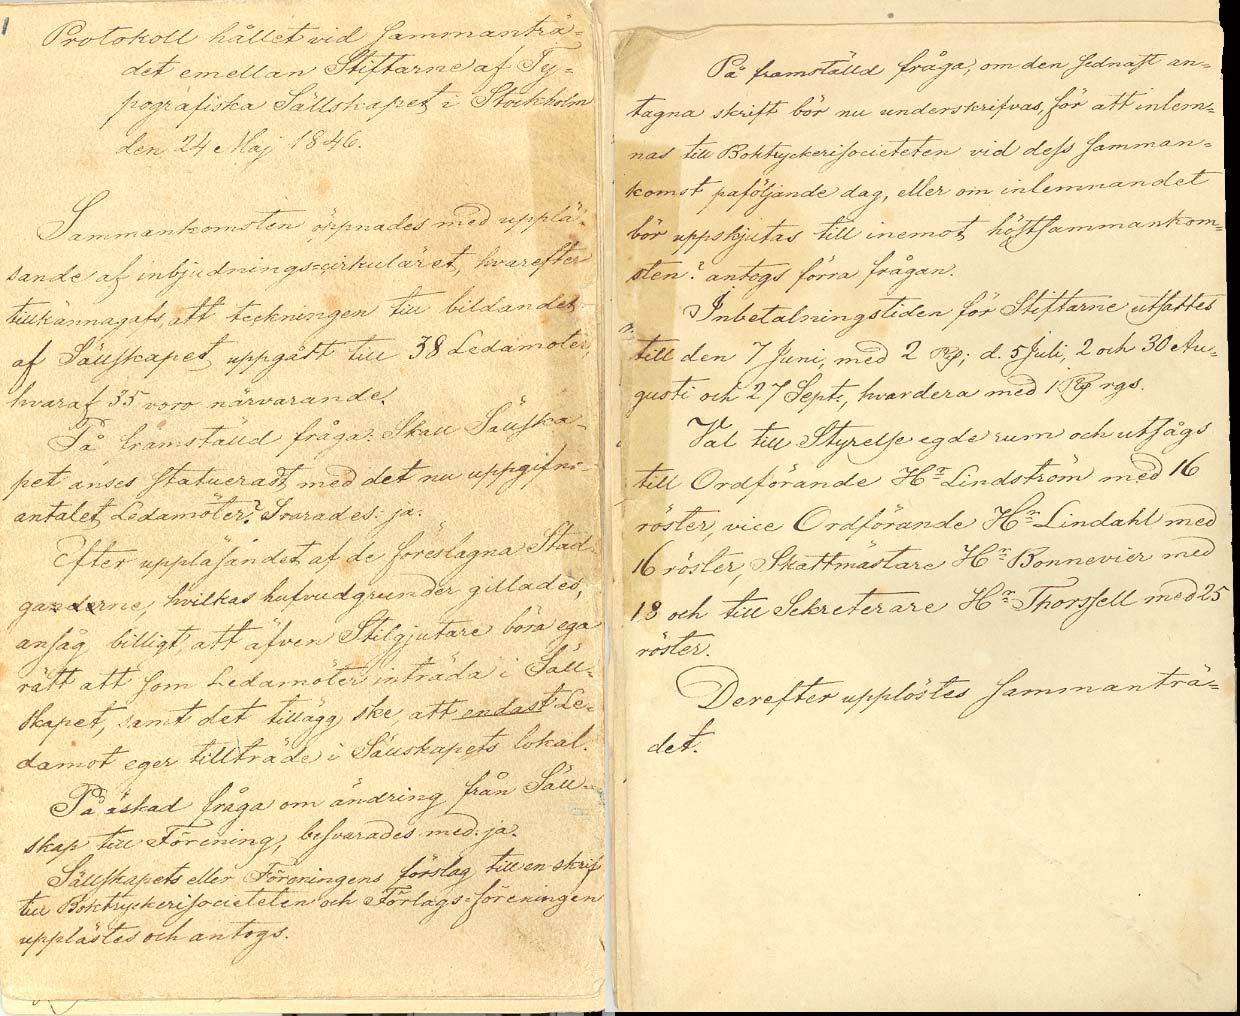 Protokoll hållet vid Sammanträ=
det emellan Stiftarne af Ty=
pografiska Sällskapet i Stockholm
den 24 Maj 1846.
Sammankomsten öppnades med upplä=
sande af inbjudnings=cirkuläret, hvarefter
tillkännagafs, att teckningen till bildandet
af Sällskapet uppgått till 38 Ledamöter,
hvaraf 35 voro närvarande.
På framställd fråga: Skall Sällska=
pet anses statueradt med det nu uppgifne
antalet Ledamöter? Svarades: ja.
Efter uppläsandet af de föreslagna Stad=
garderne, hvilkas hufvudgrunder gillades,
ansåg billigt, att äfven Stilgjutare böra ega
rätt att som Ledamöter inträda i Säll=
skapet, samt det tillägg ske, att endast Le=
damot eger tillträde i Sällskapets lokal.
På äskad fråga om ändring från Säll=
skap till Förening, besvarades med: ja.
Sällskapets eller Föreningens förslag till en skrif
till Boktryckerisocieteten och Förlags=föreningen
upplästes och antogs.
På framställd fråga, om den sednast an=
tagna skrift bör nu underskrifvas, för att inlem=
nas till Boktryckerisocieteten vid dess samman=
komst påföljande dag, eller om inlemnandet
bör uppskjutas till inemot höstsammankom=
sten? antogs förra frågan.
Inbetalningstiden för Stiftarne utsattes
till den 7 Juni, med 2 Rd; d. 5 Juli, 2 och 30 Au=
gusti och 27 Sept., hvardera med 1 Rd rgs.
Val till Styrelse egde rum och utsågs
till Ordförande Hr Lindström med 16
röster, vice Ordförande Hr Lindahl med
16 röster, Skattmästare Hr Bonnevier med
18 och till Sekreterare Hr Thorssell med 25
röster.
Derefter upplöstes Sammanträ=
det.